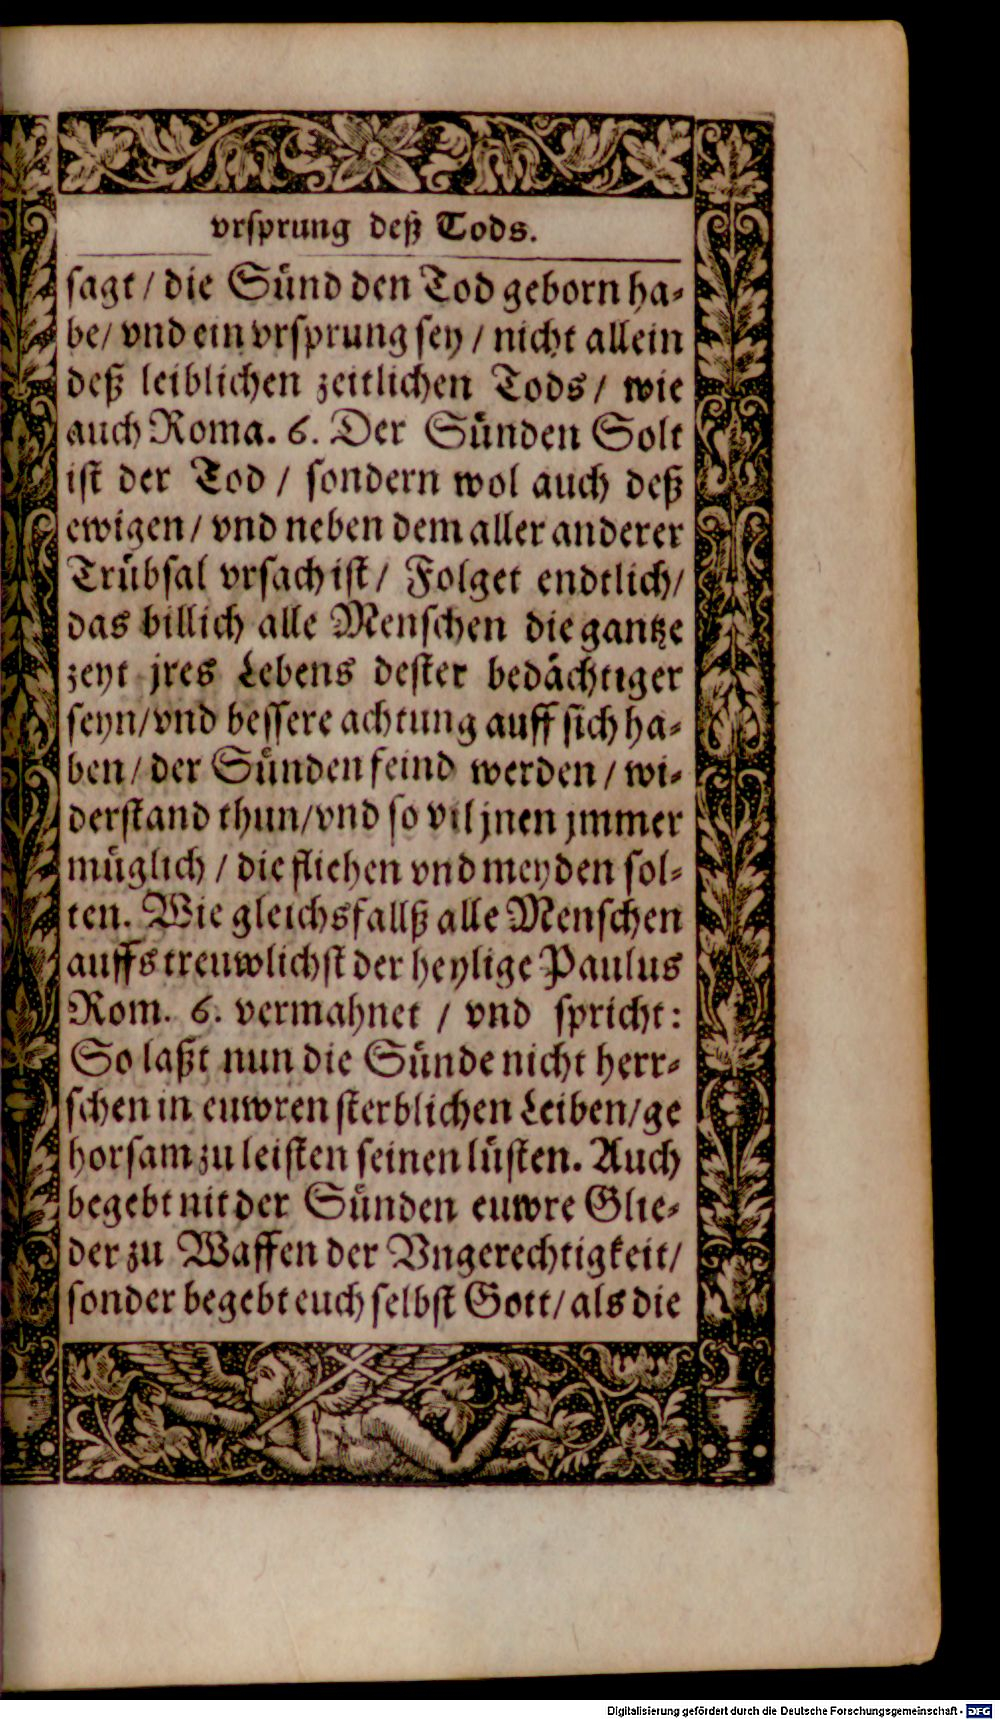 vrsprung deß Tods.
sagt / die Sünd den Tod geborn ha-
be/ vnd ein vrsprung sey / nicht allein
deß leiblichen zeitlichen Tods/ wie
auch Roma. 6. Der Sünden Solt
ist der Tod / sondern wol auch deß
ewigen / vnd neben dem aller anderer
Trübsal vrsach ist / Folget endtlich/
das billich alle Menschen die gantze
zeyt jres Lebens dester bedächtiger
seyn/vnd bessere achtung auff sich ha-
ben / der Sünden feind werden / wi-
derstand thun/vnd so vil jnen jmmer
müglich / die fliehen vnd meyden sol-
ten. Wie gleichsfallß alle Menschen
auffs treuwlichst der heylige Paulus
Rom. 6. vermahnet / vnd spricht:
So laßt nun die Sünde nicht herr-
schen in euwren sterblichen Leiben/ge
horsam zu leisten seinen lüsten. Auch
begebt nit der Sünden euwre Glie-
der zu Waffen der Vngerechtigkeit/
sonder begebt euch selbst Gott/ als die
Digitalisierung gefördert durch die Deutsche Forschungsgemeinschaft - DFG